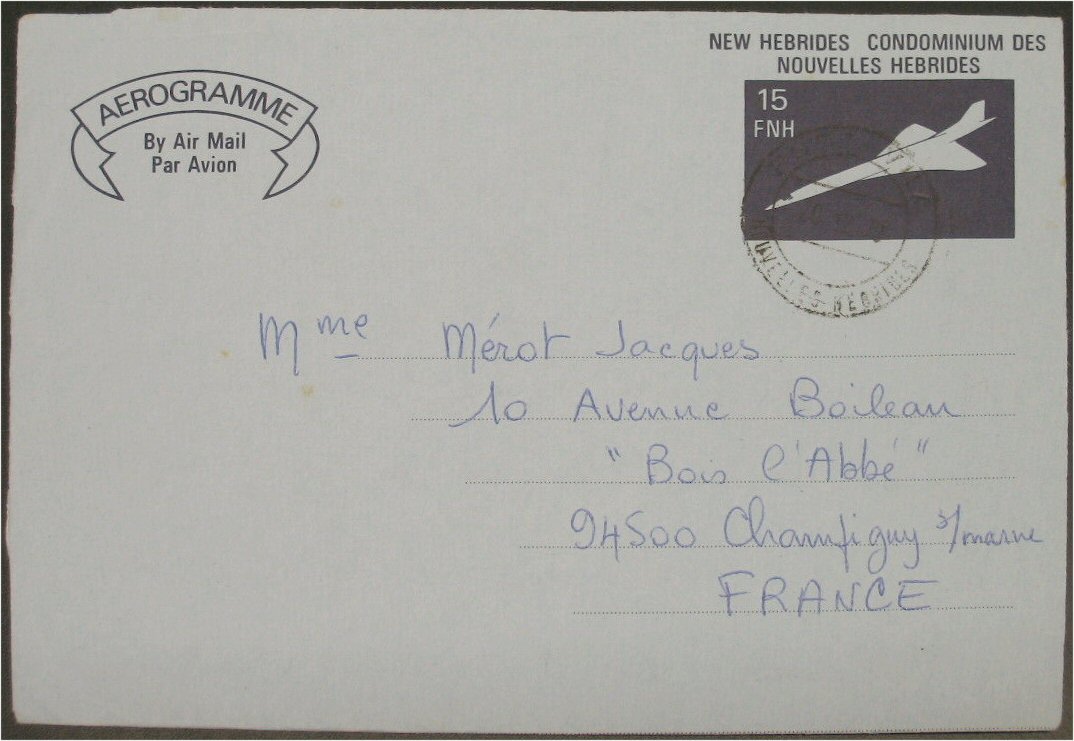 NEW HEBRIDES CONDOMINIUM DES
NOUVELLES HEBRIDES
AEROGRAMME
By Air Mail
Par Avion
15
FNH
NOUVELLES-HEBRIDES
Mme Mérot Jacques
10 Avenue Boileau
"Bois l'Abbé"
94500 Champigny s/marne
FRANCE